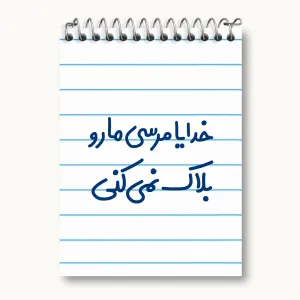 خدایا مرسی مارو
بلاک نمی‌کنی